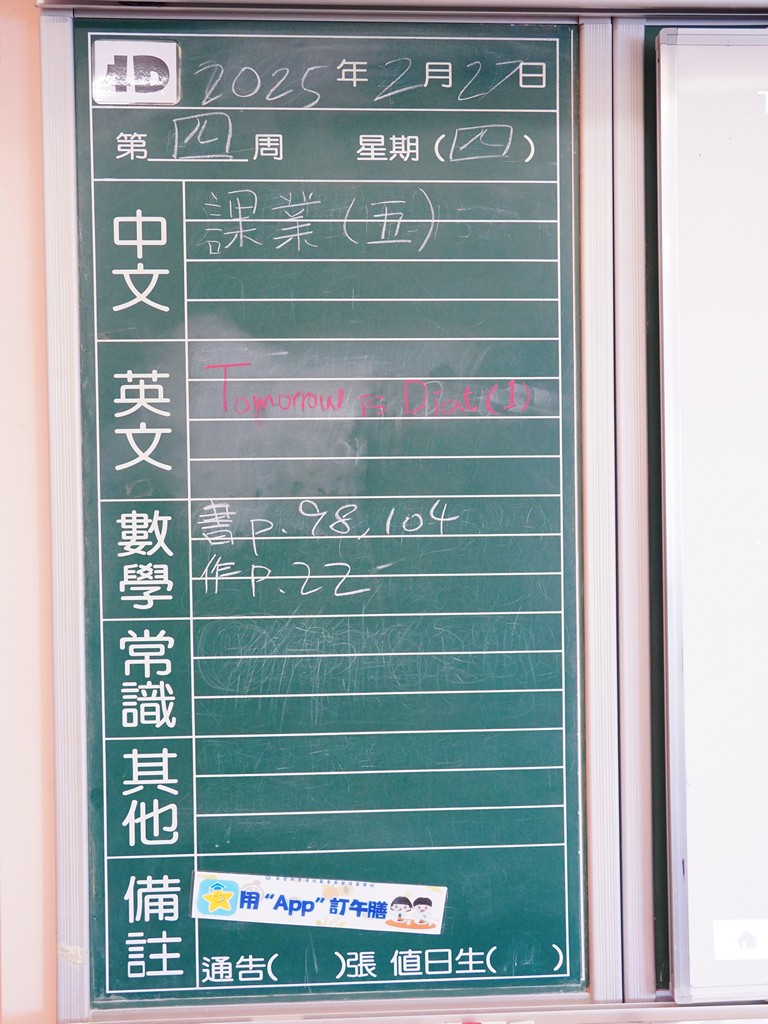 1D 2025年2月27日
第四周 星期(四)
中文
課業(五)
英文
Tomorrow is Dict.(1)
數學
書p.98,104
作p.22
常識
其他
備註
用“App”訂午膳
通告( )張 值日生( )